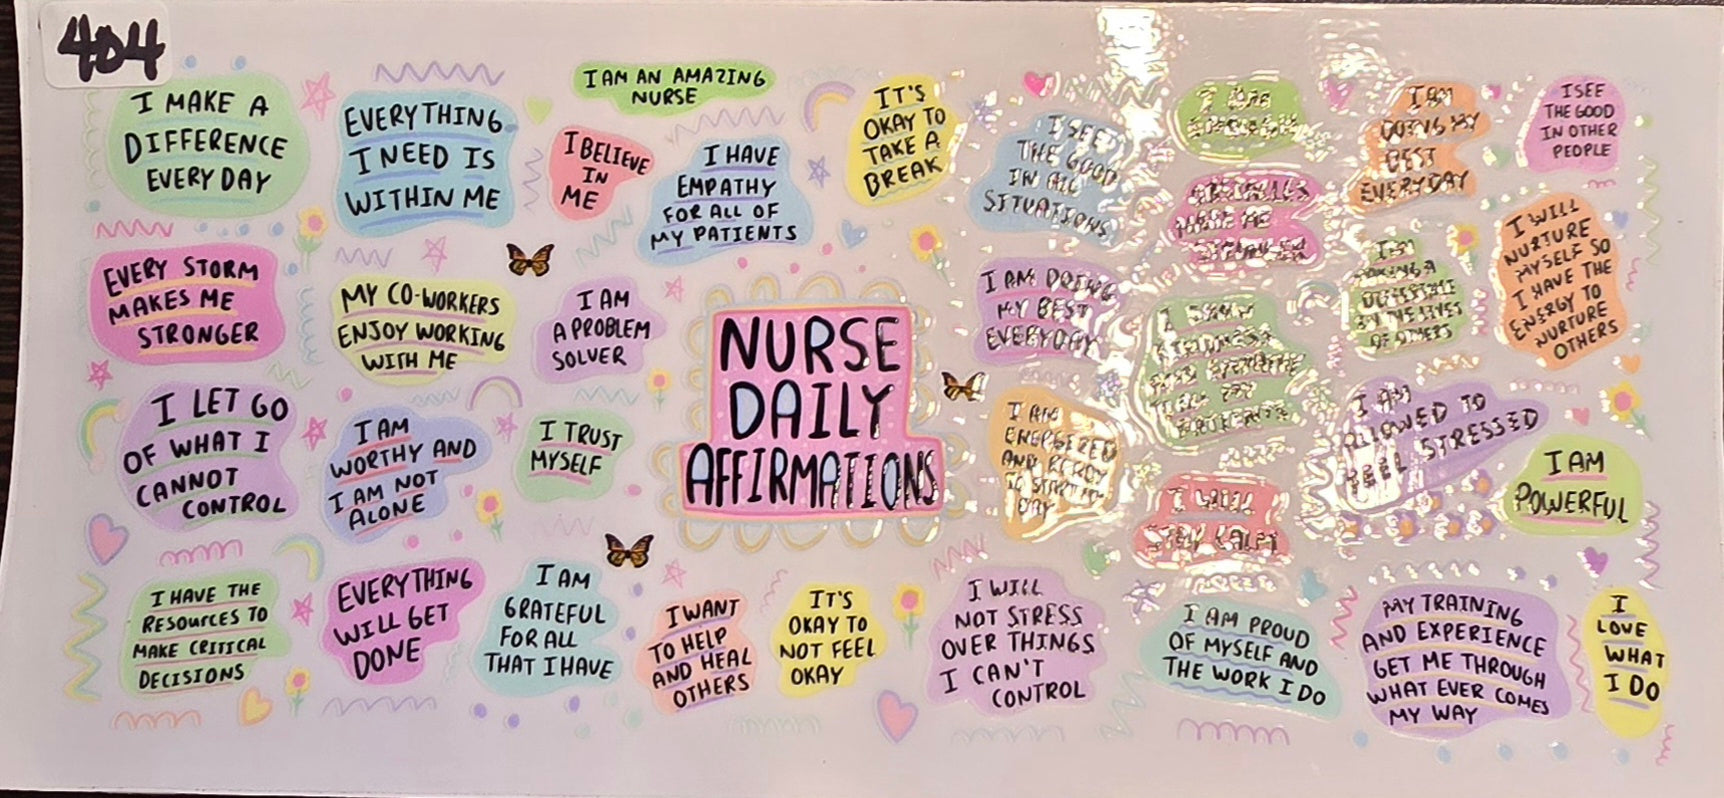 404
I MAKE A
DIFFERENCE
EVERY DAY
EVERYTHING
I NEED IS
WITHIN ME
I AM AN AMAZING
NURSE
I BELIEVE
IN
ME
I HAVE
EMPATHY
FOR ALL OF
MY PATIENTS
IT'S
OKAY TO
TAKE A
BREAK
I SEE
THE GOOD
IN ALL
SITUATIONS
I AM
I AM
DOING MY
BEST
EVERYDAY
I SEE
THE GOOD
IN OTHER
PEOPLE
EVERY STORM
MAKES ME
STRONGER
MY CO-WORKERS
ENJOY WORKING
WITH ME
I AM
A PROBLEM
SOLVER
NURSE
DAILY
AFFIRMATIONS
I AM DOING
MY BEST
EVERYDAY
MAKE ME
I AM
MAKING A
DIFFERENCE
IN THE LIVES
OF OTHERS
I WILL
NURTURE
MYSELF SO
I HAVE THE
ENERGY TO
NURTURE
OTHERS
I LET GO
OF WHAT I
CANNOT
CONTROL
I AM
WORTHY AND
I AM NOT
ALONE
I TRUST
MYSELF
I AM
ENERGIZED
AND READY
TO START MY
DAY
KINDNESS
I AM
ALLOWED TO
FEEL STRESSED
I AM
POWERFUL
I WILL
STAY CALM
I HAVE THE
RESOURCES TO
MAKE CRITICAL
DECISIONS
EVERYTHING
WILL GET
DONE
I AM
GRATEFUL
FOR ALL
THAT I HAVE
I WANT
TO HELP
AND HEAL
OTHERS
IT'S
OKAY TO
NOT FEEL
OKAY
I WILL
NOT STRESS
OVER THINGS
I CAN'T
CONTROL
I AM PROUD
OF MYSELF AND
THE WORK I DO
MY TRAINING
AND EXPERIENCE
GET ME THROUGH
WHAT EVER COMES
MY WAY
I
LOVE
WHAT
I DO